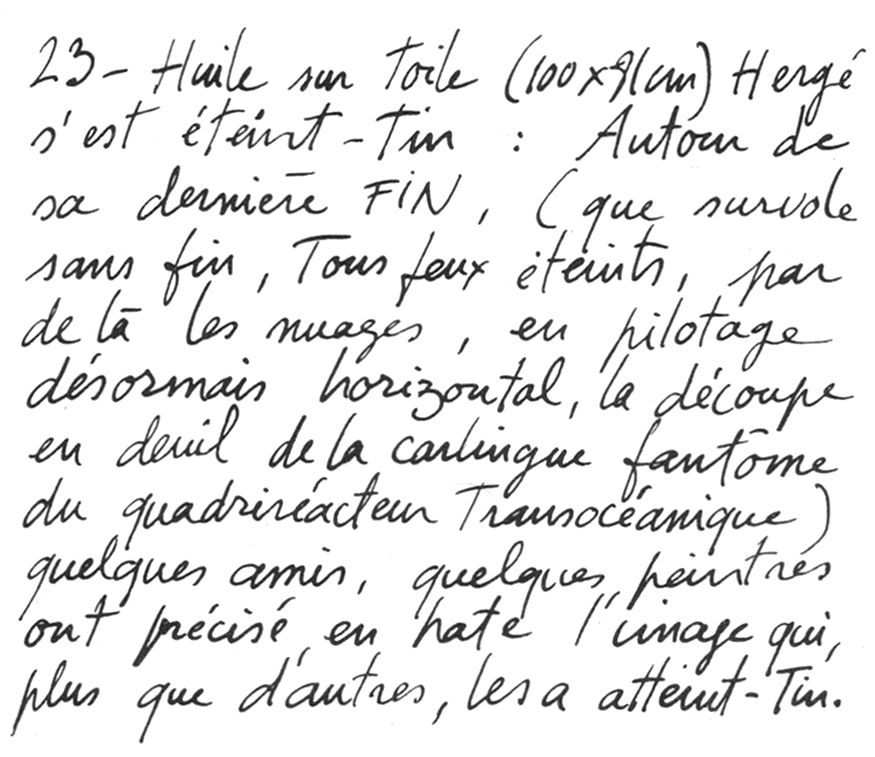 23- Huile sur toile (100x91cm) Hergé
s'est éteint-Tin : Autour de
sa dernière FiN, (que survole
sans fin, Tous feux éteints, par
delà les nuages, en pilotage
désormais horizontal, la découpe
en deuil de la carlingue fantôme
du quadriréacteur Transocéanique)
quelques amis, quelques peintres
ont précisé en hate l'image qui,
plus que d'autres, les a atteint-Tin.